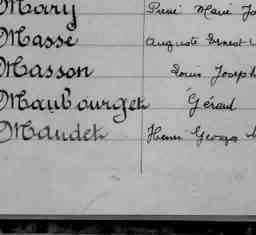 Mary René Marie
Masse Auguste Ernest
Masson Louis Joseph
Maubourget Gérard
Maudet Henri Georges